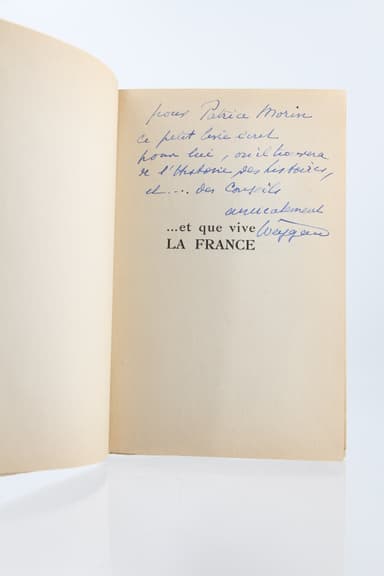 pour Patrice Morin
ce petit livre écrit
pour lui, où il trouvera
de l'Histoire, des histoires,
et.... des Conseils
amicalement
...et que vive
Weygand
LA FRANCE